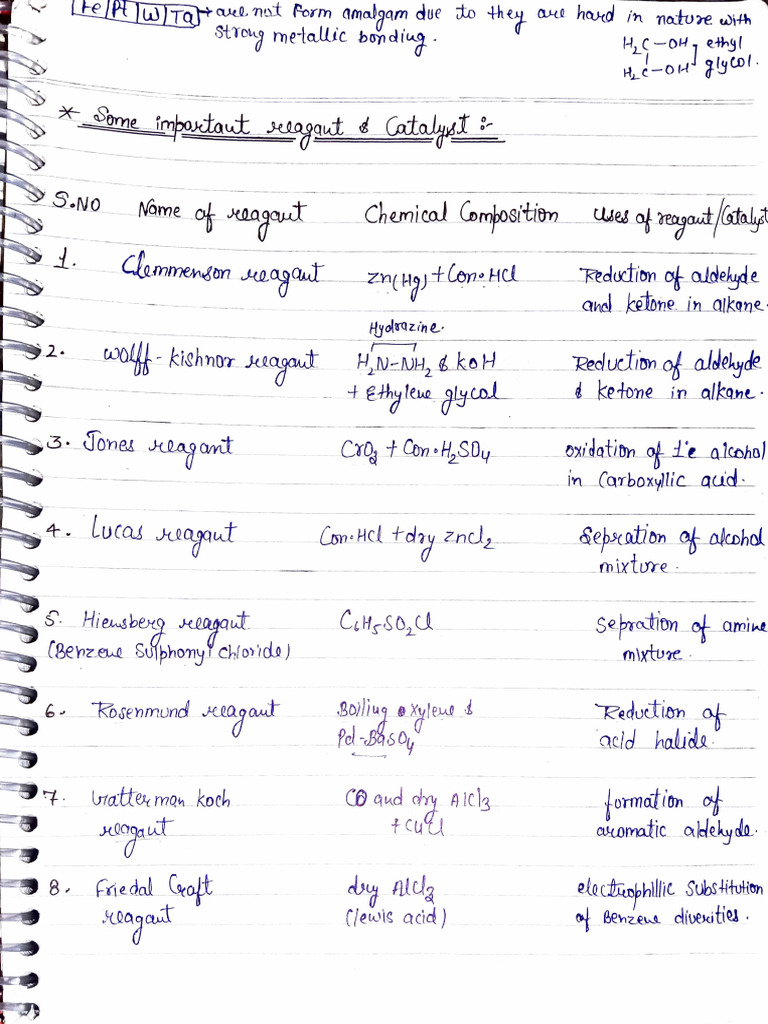 Fe Pt W Ta → are not form amalgam due to they are hard in nature with
strong metallic bonding.
H₂C – OH ethyl
H₂C – OH glycol.
* Some impartaut reagaut & Catalyst :-
S.NO Name of reagaut Chemical Composition Uses of reagaut/Catalyst
1. Clemmenson reagaut Zn(Hg) + Con·HCl Reduction of aldehyde
and ketone in alkane.
Hydrazine.
2. Wolff-kishnor reagaut H₂N–NH₂ & KOH Reduction of aldehyde
+ Ethylene glycol & ketone in alkane.
3. Jones reagant CrO₃ + Con·H₂SO₄ oxidation of 1°e alcohol
in Carboxyllic acid.
4. Lucas reagaut Con·HCl + dry zncl₂ Sepration of alcohol
mixture.
5. Hiensberg reagaut C₆H₅SO₂Cl Sepration of amine
(Benzene Sulphonyl chloride) mixture.
6. Rosenmund reagaut Boiling xylene & Reduction of
Pd-BaSO₄ acid halide.
7. Gatterman koch CO and dry AlCl₃ formation of
reagaut + CuCl aromatic aldehyde.
8. Friedal Craft dry AlCl₃ electrophillic Substitution
reagaut (lewis acid) of Benzene diverities.